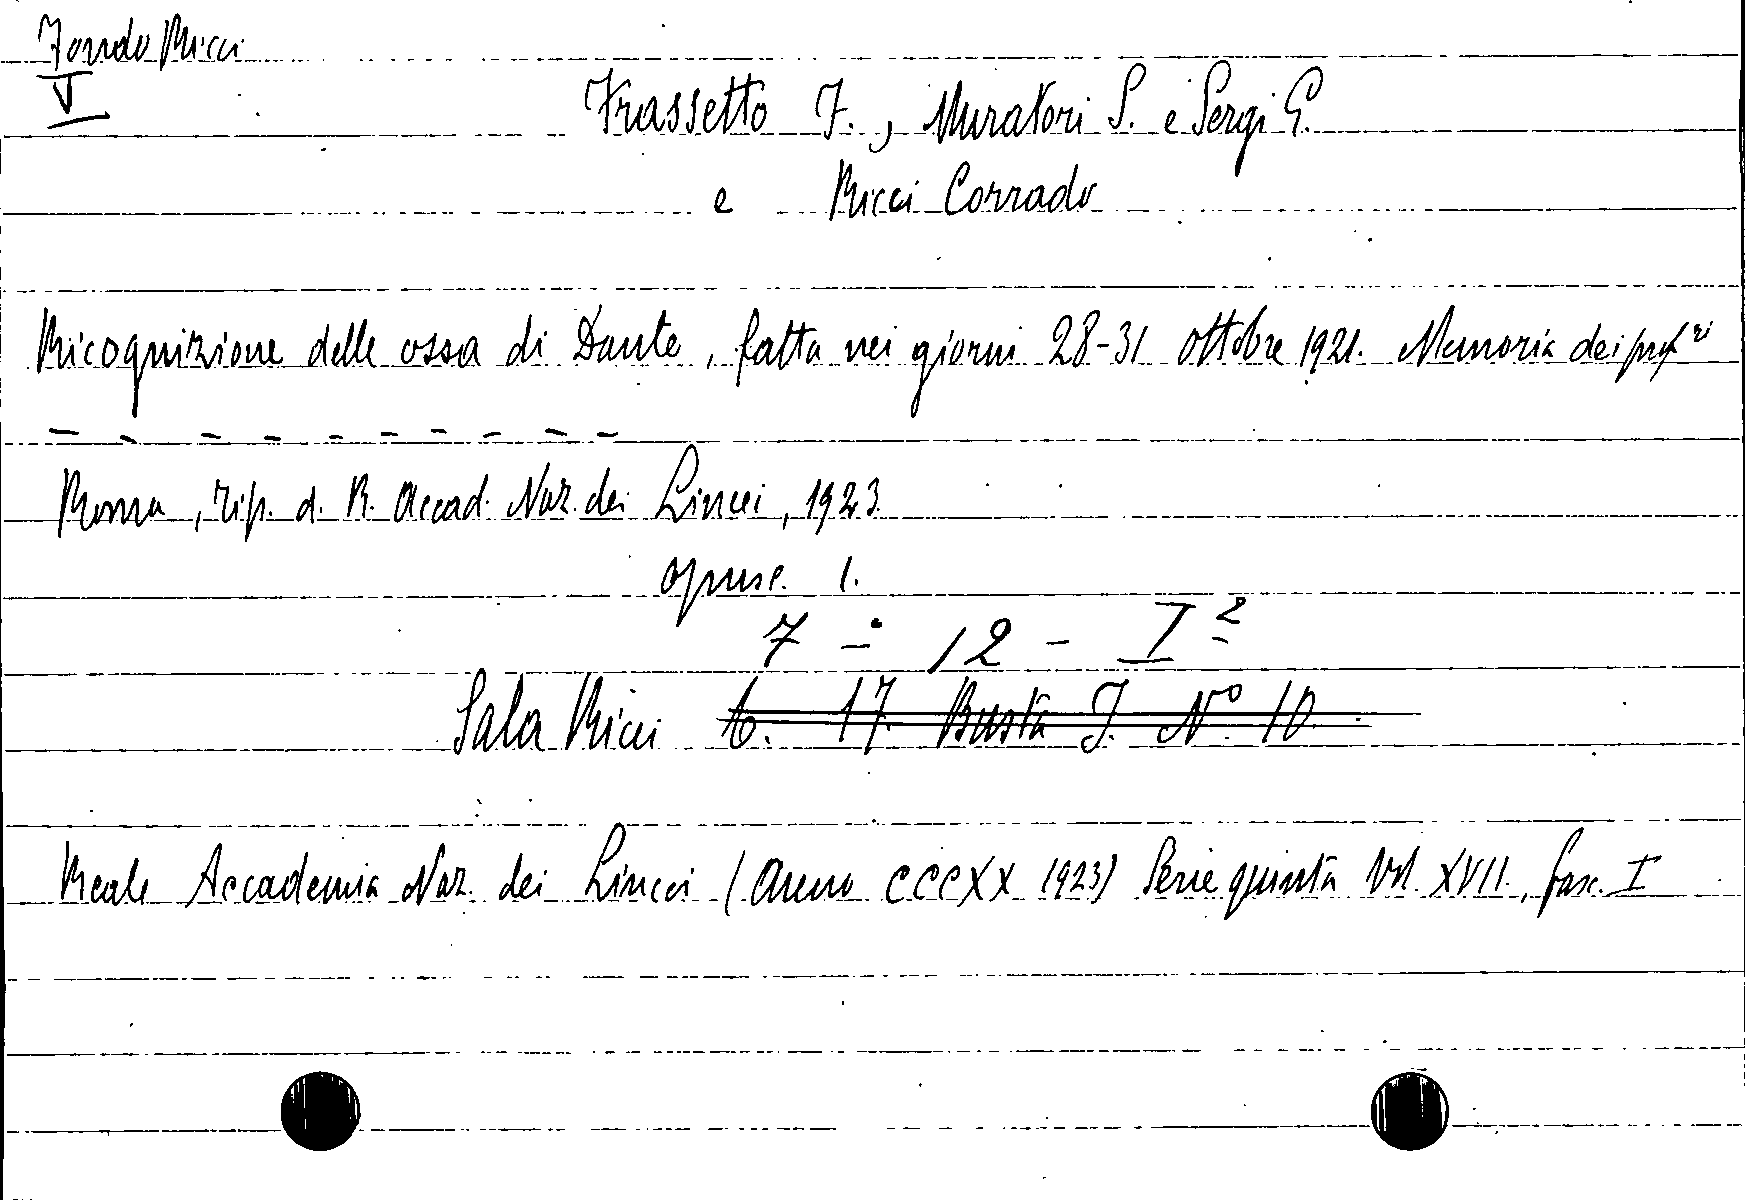 Fondo Ricci
V
Frassetto F., Muratori S. e Sergi G.
e Ricci Corrado
Ricognizione delle ossa di Dante, fatta nei giorni 28-31 ottobre 1921. Memoria dei prof.ri
— — — — — — — — — —
Roma, tip. d. R. Accad. Naz. dei Lincei, 1923.
opusc. 1.
7 - 12 - I²
Sala Ricci 6. 17. Busta I. N° 10
Reale Accademia Naz. dei Lincei (Anno CCCXX 1923) Serie quinta Vol. XVII., fasc. I